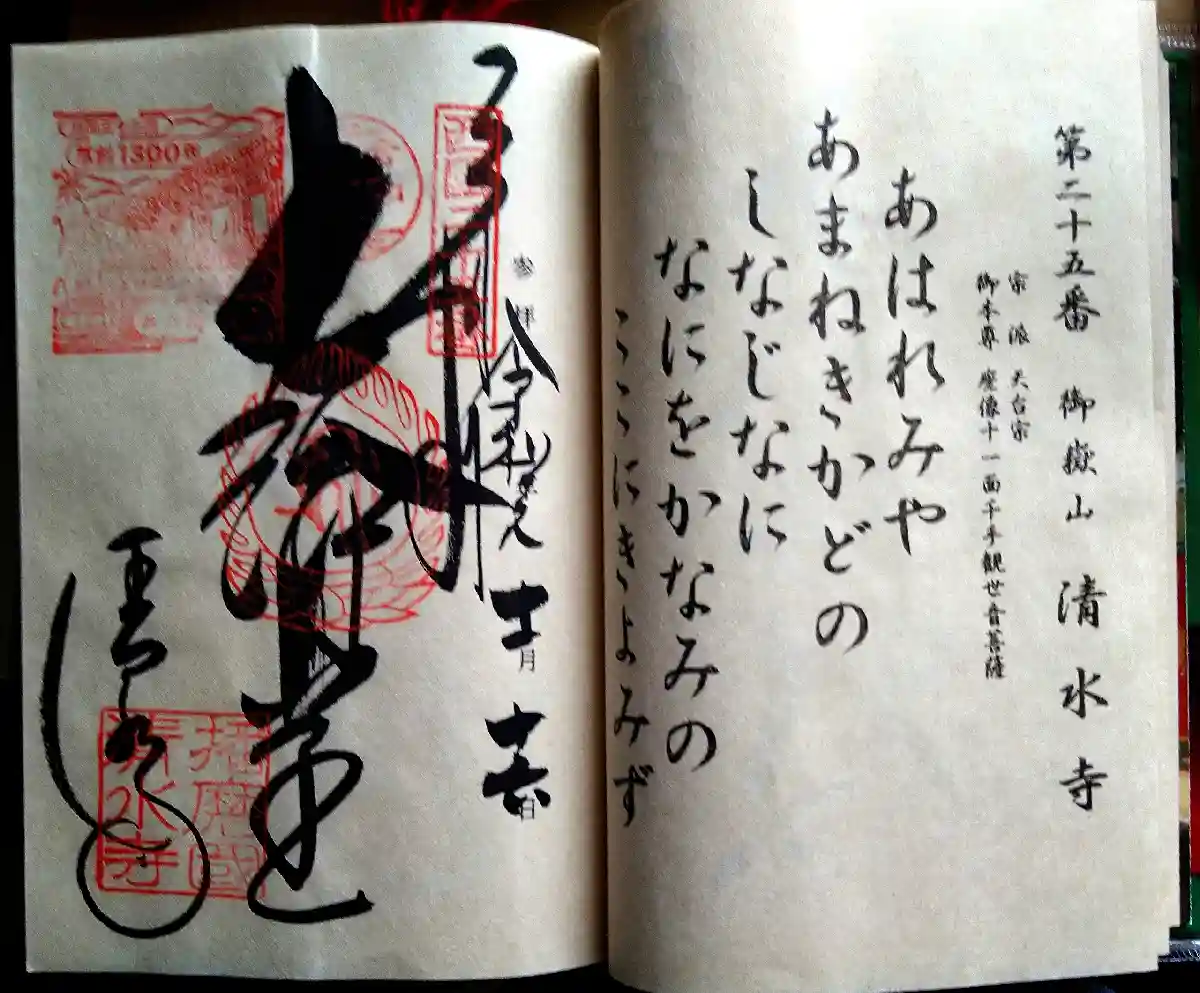 第二十五番 御嶽山 清水寺
宗派 天台宗
御本尊 座像十一面千手観世音菩薩
あはれみや
あまねきかどの
しなじなに
なにをかなみの
ここにきよみず
参拝 令和元 月 日
大講堂
清水寺
1300年
播磨国
清水寺